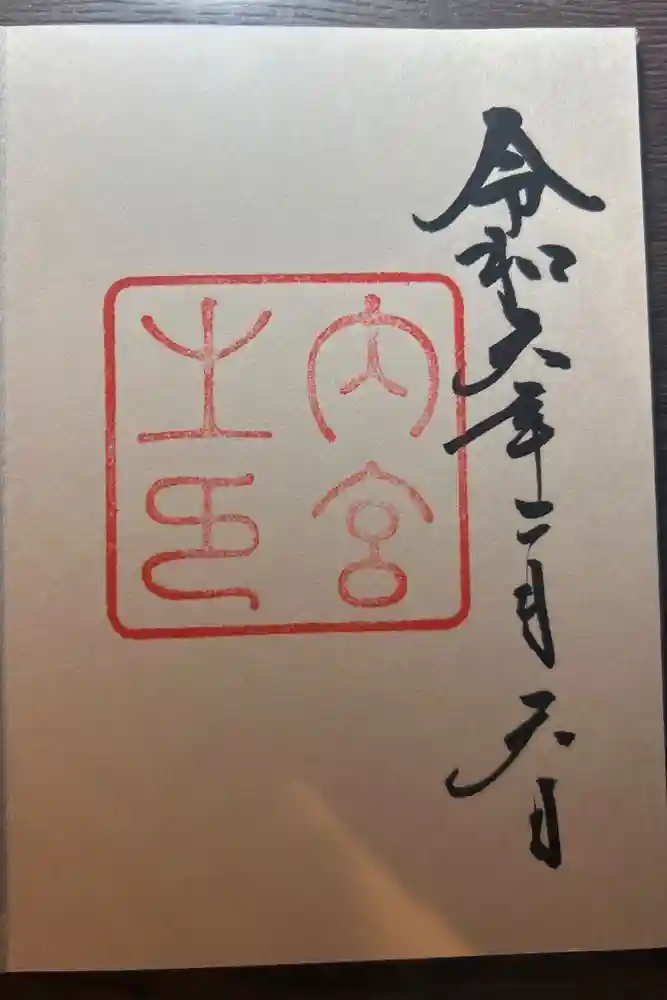 令和六年二月六日
内宮
之印